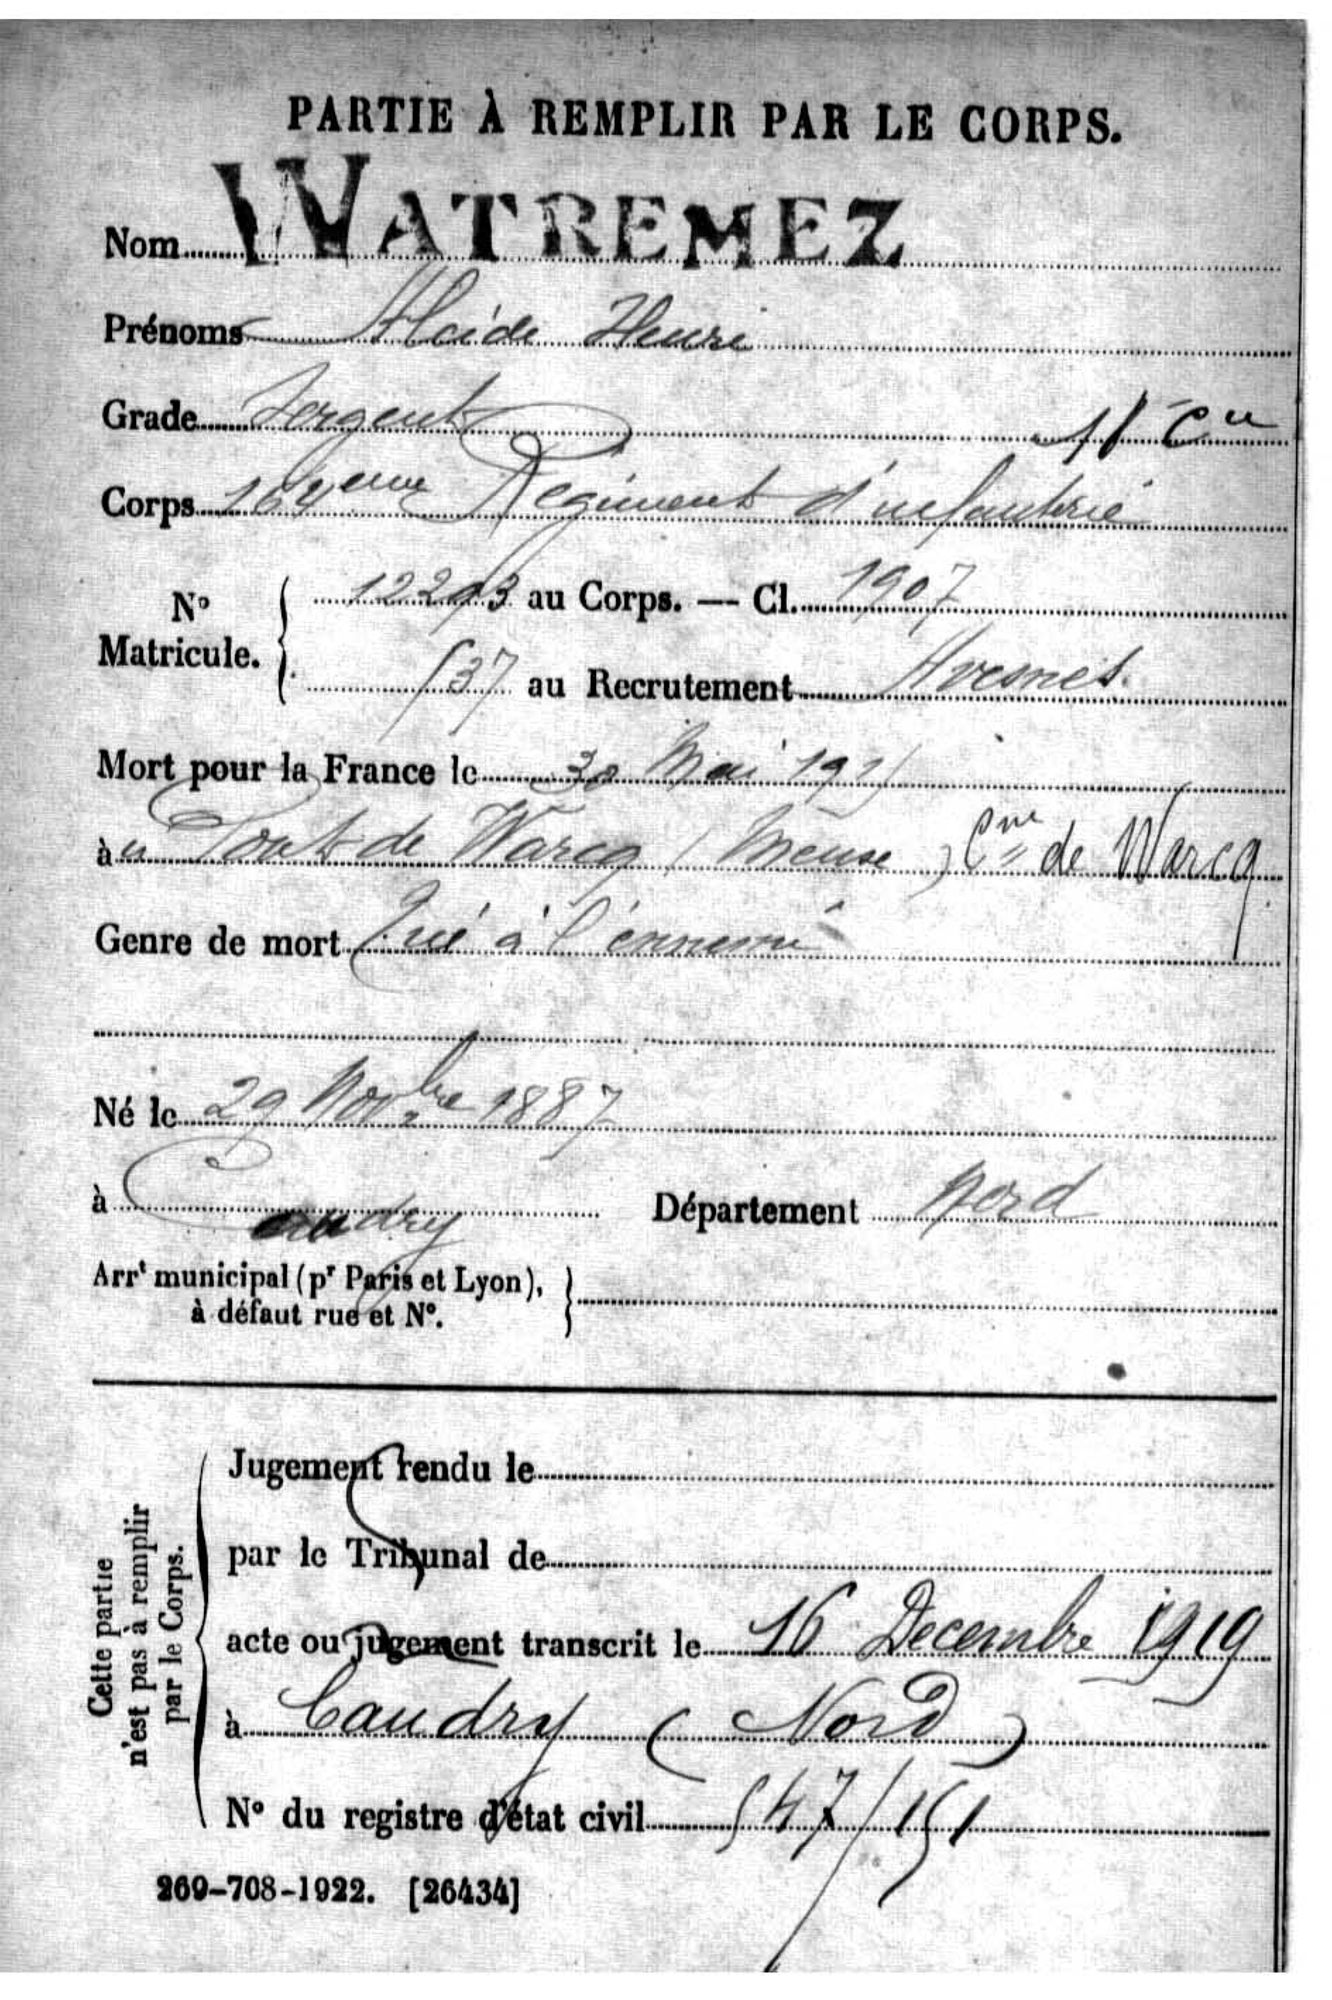 PARTIE À REMPLIR PAR LE CORPS.
Nom WATREMEZ
Prénoms Alcide Henri
Grade Sergent 11e Cie
Corps 164eme Régiment d'infanterie
No Matricule. 12293 au Corps. — Cl. 1907
537 au Recrutement Avesnes.
Mort pour la France le 30 Mai 1915
à u Pont de Warcq (Meuse) Cne de Warcq
Genre de mort Tué à l'ennemi
Né le 29 Novbre 1887
à Caudry Département Nord
Arrt municipal (pr Paris et Lyon),
à défaut rue et No.
Cette partie
n'est pas à remplir
par le Corps.
Jugement rendu le
par le Tribunal de
acte ou jugement transcrit le 16 Decembre 1919
à Caudry (Nord)
No du registre d'état civil 547/151
269-708-1922. [26434]